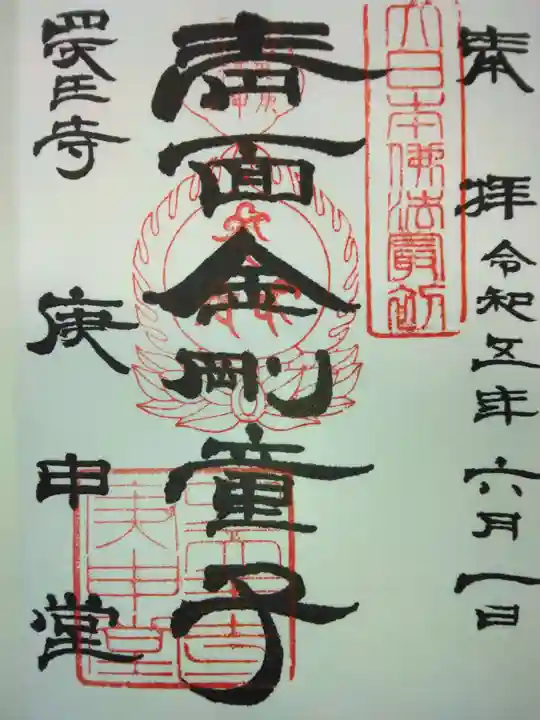 奉拝
令和五年六月一日
大日本佛法最初
青面金剛童子
四天王寺
庚申堂